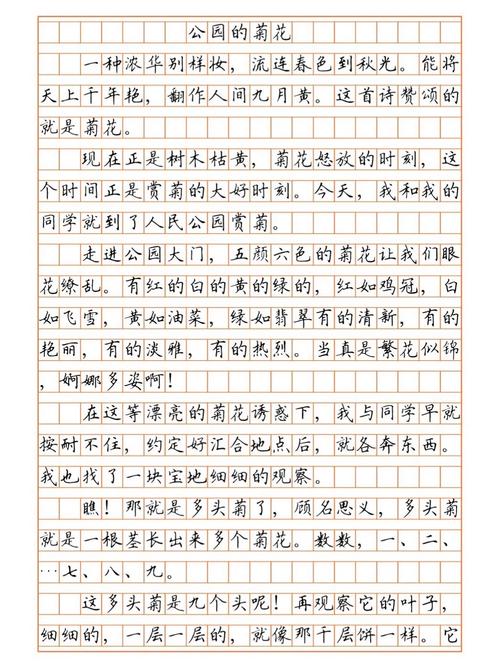 公园的菊花
一种浓华别样妆，流连春色到秋光。能将
天上千年艳，翻作人间九月黄。这首诗赞颂的
就是菊花。
现在正是树木枯黄，菊花怒放的时刻，这
个时间正是赏菊的大好时刻。今天，我和我的
同学就到了人民公园赏菊。
走进公园大门，五颜六色的菊花让我们眼
花缭乱。有红的白的黄的绿的，红如鸡冠，白
如飞雪，黄如油菜，绿如翡翠有的清新，有的
艳丽，有的淡雅，有的热烈。当真是繁花似锦
，婀娜多姿啊！
在这等漂亮的菊花诱惑下，我与同学早就
按耐不住，约定好汇合地点后，就各奔东西。
我也找了一块宝地细细的观察。
瞧！那就是多头菊了，顾名思义，多头菊
就是一根茎长出来多个菊花。数数，一、二、
…七、八、九。
这多头菊是九个头呢！再观察它的叶子，
细细的，一层一层的，就像那千层饼一样。它